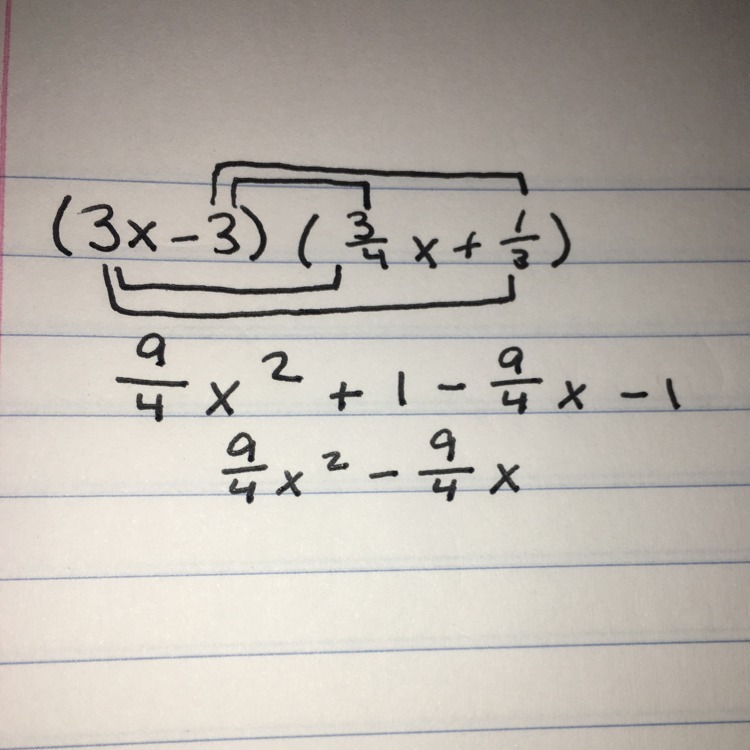 (3x-3) (3/4 x + 1/3)
9/4 x² + 1 - 9/4 x - 1
9/4 x² - 9/4 x